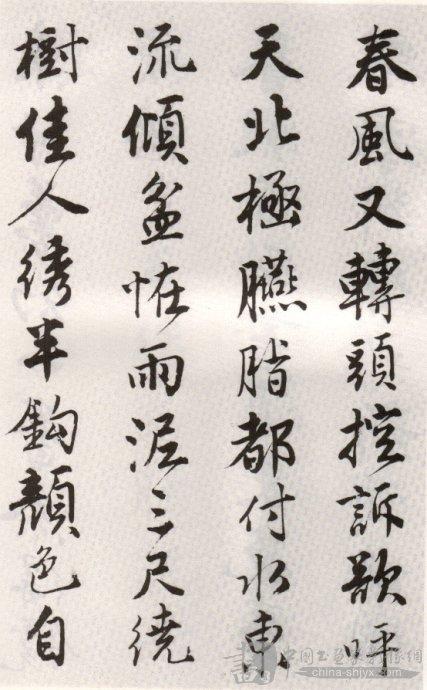 春風又轉頭控訴欲呼
天北極臙脂都付水東
流傾盆恠雨泥三尺繞
樹佳人綉半鈎顏色自
china-shjyx.com